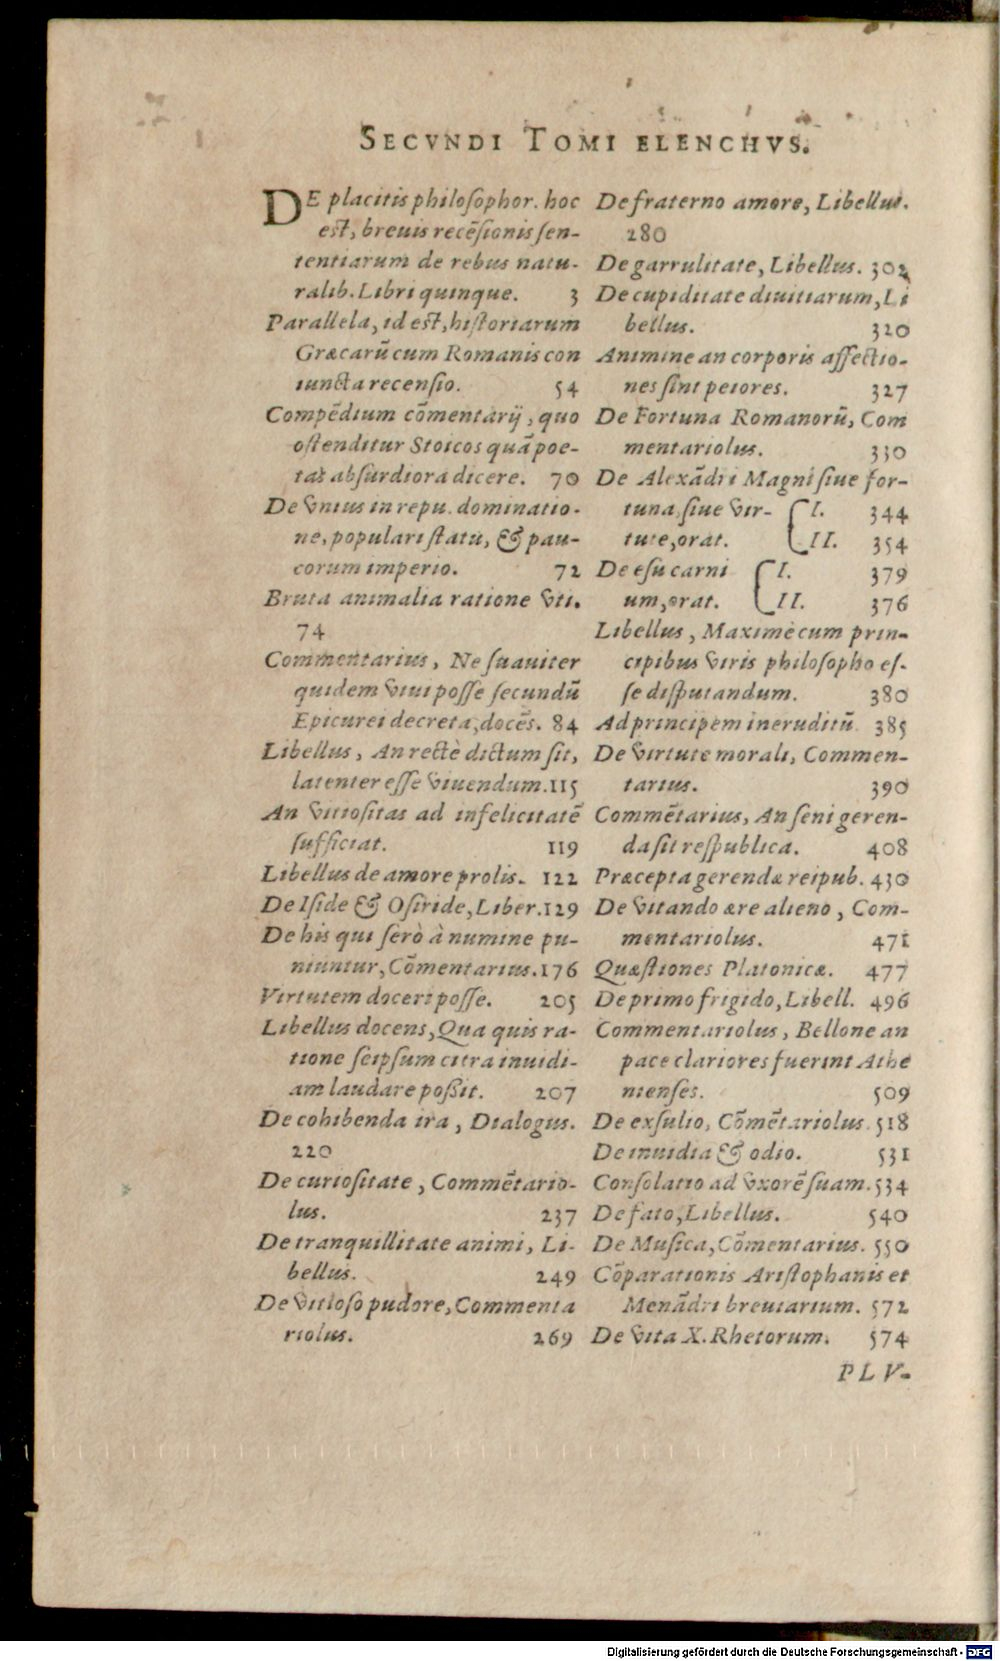 SECVNDI TOMI ELENCHVS.
DE placitis philosophor. hoc
est, breuis recēsionis sen-
tentiarum de rebus natu-
ralib. Libri quinque. 3
Parallela, id est, historiarum
Græcarū cum Romanis con
iuncta recensio. 54
Compēdium cōmentarij, quo
ostenditur Stoicos quā poe-
tas absurdiora dicere. 70
De vnius in repu. dominatio-
ne, populari statu, & pau-
corum imperio. 72
Bruta animalia ratione vti.
74
Commentarius, Ne suauiter
quidem viui posse secundū
Epicurei decreta, docēs. 84
Libellus, An rectè dictum sit,
latenter esse viuendum. 115
An vitiositas ad infelicitatē
sufficiat. 119
Libellus de amore prolis. 122
De Iside & Osiride, Liber. 129
De his qui serò à numine pu-
niuntur, Cōmentarius. 176
Virtutem doceri posse. 205
Libellus docens, Qua quis ra-
tione seipsum citra inuidi-
am laudare poßit. 207
De cohibenda ira, Dialogus.
220
De curiositate, Commētario-
lus. 237
De tranquillitate animi, Li-
bellus. 249
De vitioso pudore, Commenta
riolus. 269
De fraterno amore, Libellus.
280
De garrulitate, Libellus. 302
De cupiditate diuitiarum, Li
bellus. 320
Animine an corporis affectio-
nes sint peiores. 327
De Fortuna Romanorū, Com
mentariolus. 330
De Alexādri Magni siue for-
tuna, siue vir- I. 344
tute, orat. II. 354
De esu carni I. 379
um, orat. II. 376
Libellus, Maximè cum prin-
cipibus viris philosopho es-
se disputandum. 380
Ad principem ineruditū 385
De virtute morali, Commen-
tarius. 390
Commētarius, An seni geren-
da sit respublica. 408
Præcepta gerendæ reipub. 430
De vitando ære alieno, Com-
mentariolus. 471
Quæstiones Platonicæ. 477
De primo frigido, Libell. 496
Commentariolus, Bellone an
pace clariores fuerint Athe
nienses. 509
De exsulio, Cōmētariolus. 518
De inuidia & odio. 531
Consolatio ad vxorē suam. 534
De fato, Libellus. 540
De Musica, Cōmentarius. 550
Cōparationis Aristophanis et
Menādri breuiarium. 572
De vita X. Rhetorum. 574
PLV-
Digitalisierung gefördert durch die Deutsche Forschungsgemeinschaft - DFG